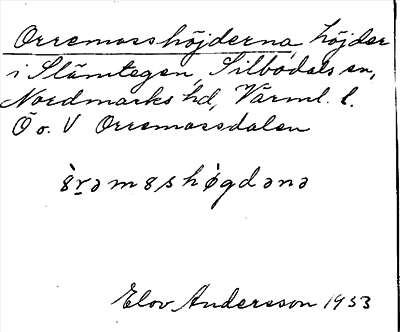 Orremosshöjderna, höjder
i Slämtegen, Silbodals sn,
Nordmarks hd, Värml. l.
Ö o. V Orremossdalen
Elov Andersson 1953